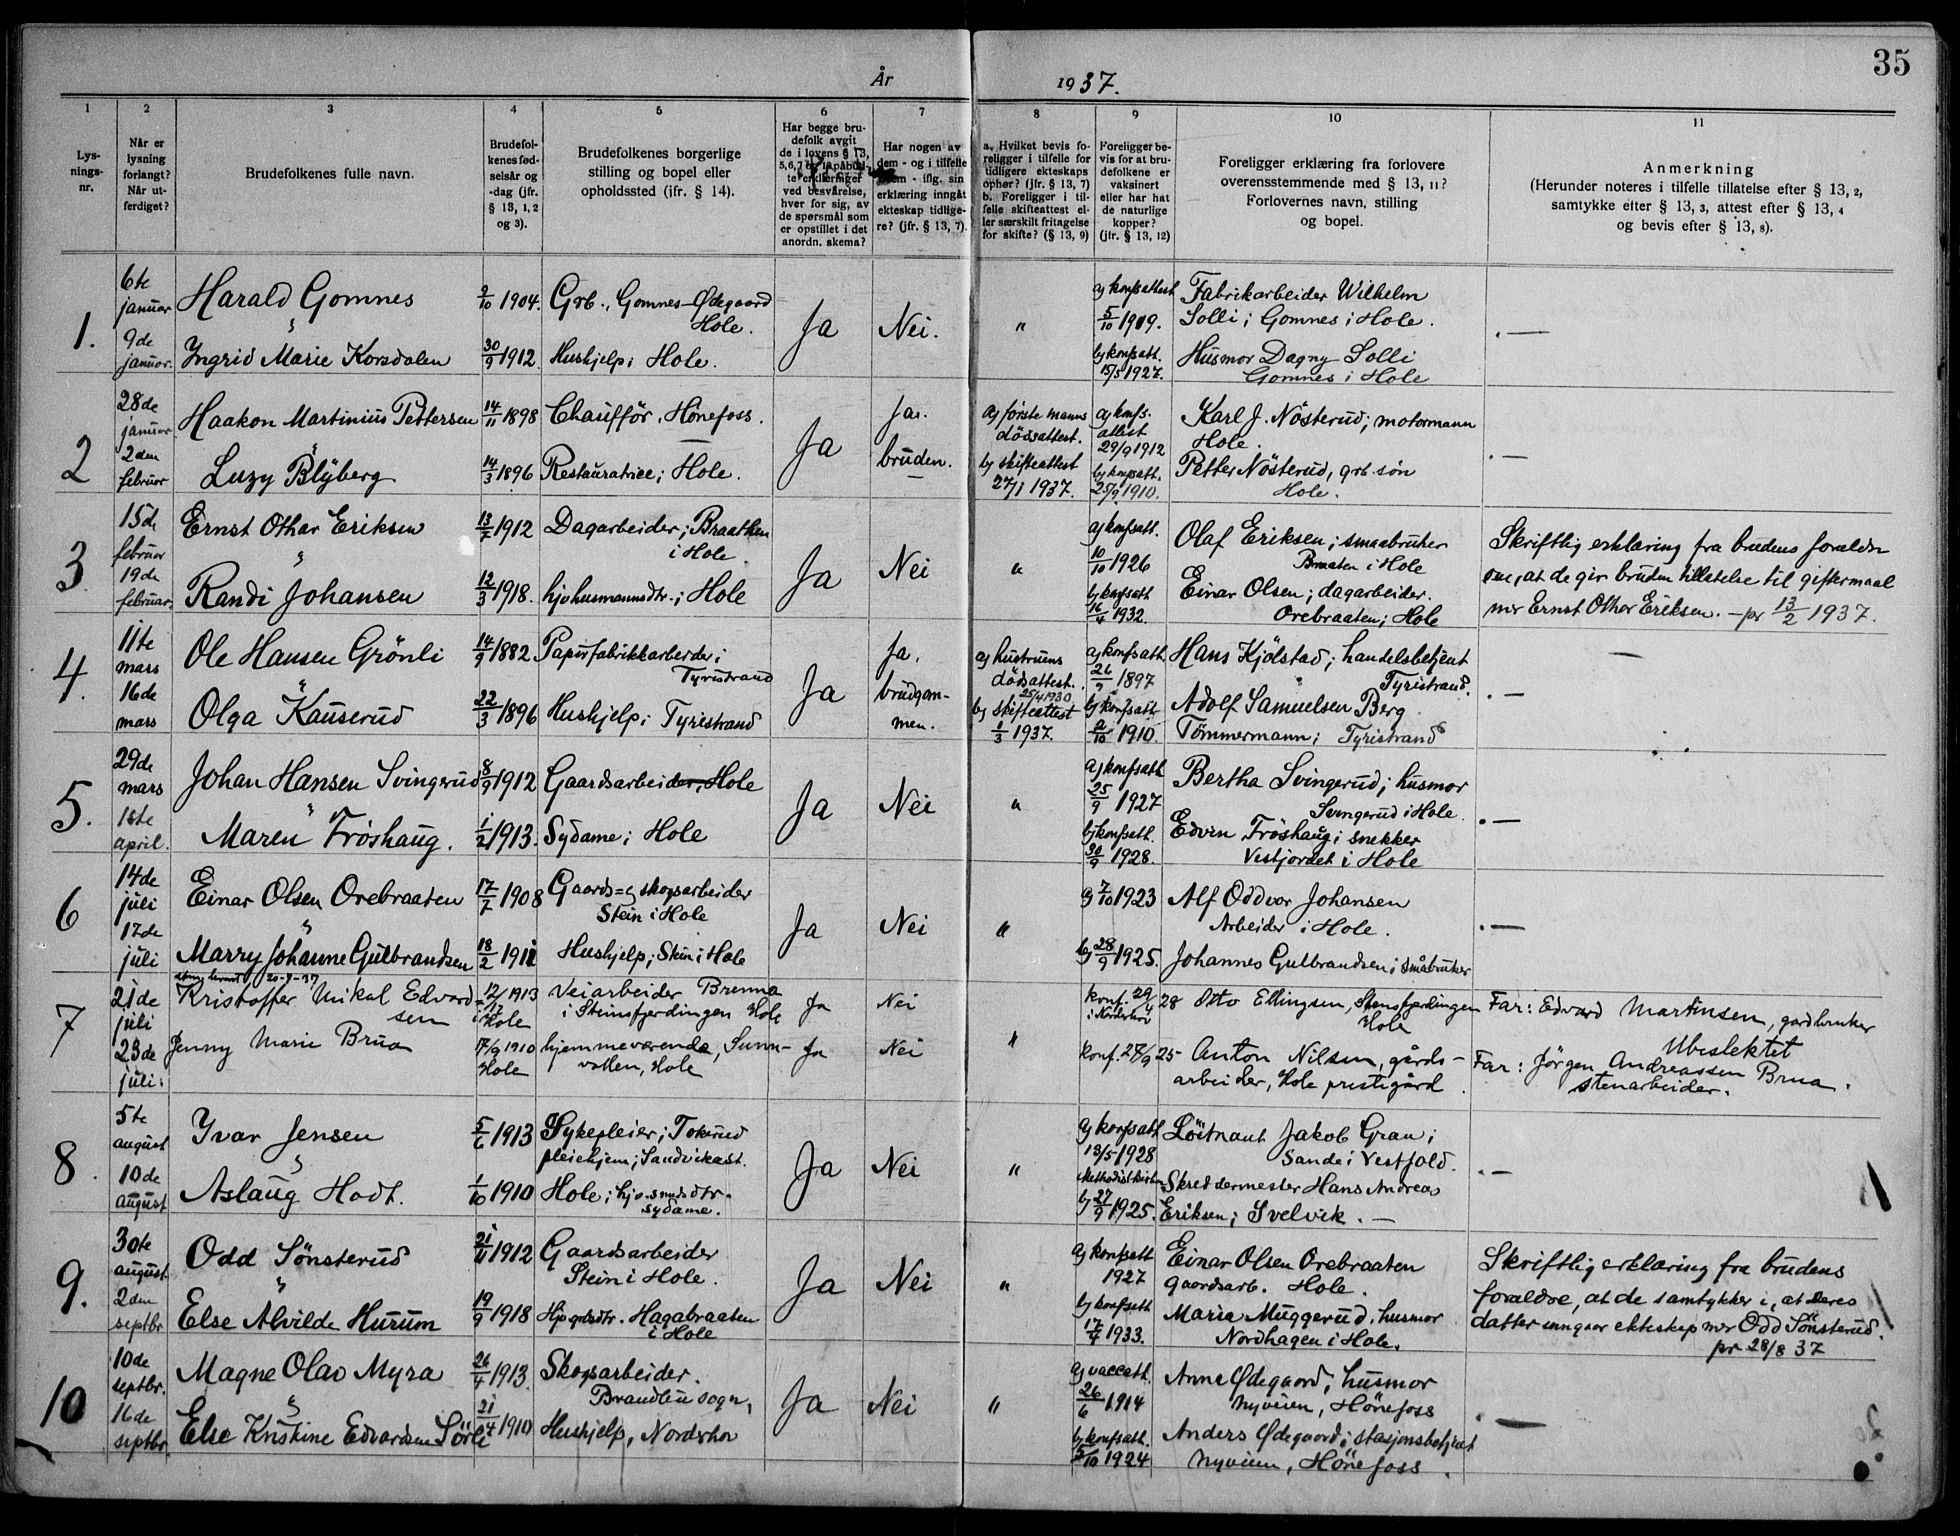 35
År 1937.
1 2 3 4 5 6 7 8 9 10 11
Lysningsnr.
Når er lysning forlangt? Når utferdiget?
Brudefolkenes fulle navn.
Brudefolkenes fødselsår og -dag (jfr. § 13, 1, 2 og 3).
Brudefolkenes borgerlige stilling og bopel eller opholdssted (ifr. § 14).
Har begge brudefolk avgit de i lovens § 13, 5, 6, 7 erklæringer ved besvarelse, hver for sig, av de spørsmål som er opstillet i det anordn. skema?
Har nogen av dem - og i tilfelle - iflg. sin erklæring inngått ekteskap tidligere? (jfr. § 13, 7).
a. Hvilket bevis foreligger i tilfelle for tidligere ekteskaps ophør? (jfr. § 13, 7) b. Foreligger i tilfelle skifteattest eller særskilt fritagelse for skifte? (§ 13, 9)
Foreligger bevis for at brudefolkene er vaksinert eller har hat de naturlige kopper? (jfr. § 13, 12)
Foreligger erklæring fra forlovere overensstemmende med § 13, 11? Forlovernes navn, stilling og bopel.
Anmerkning (Herunder noteres i tilfelle tillatelse efter § 13, 2, samtykke efter § 13, 3, attest efter § 13, 4 og bevis efter § 13, 8).
1.
6te januar
9de januar.
Harald Gomnes 9/10 1904. Grb., Gomnes-Ødegaard Hole.
Ingrid Marie Korsdalen 30/9 1912. Hushjelp; Hole.
Ja Nei. "
a) konfsattest 5/10 1919.
b) konfsatt. 15/5 1927.
Fabrikarbeider Wilhelm
Solli; Gomnes i Hole.
Husmor Dagny Solli
Gomnes i Hole
2
28de januar
2den februar
Haakon Martinius Pettersen 14/11 1898 Chauffør, Hönefoss.
Luzy Blyberg 14/3 1896 Restauratrice; Hole.
Ja Ja. bruden.
a) første manns dödsattest.
b) skifteattest 27/1 1937.
a) konfs. attest 29/9 1912
b) konfsatt. 25/9 1910.
Karl J. Nösterud; motormann
Hole.
Petter Nösterud, grb. søn
Hole.
3.
15de februar
19de februar.
Ernst Othar Eriksen 13/2 1912 Dagarbeider; Braathen i Hole
Randi Johansen 12/3 1918. hjv. husmannsdtr.; Hole
Ja Nei "
a) konfsatt. 10/10 1926
b) konfsatt 16/4 1932.
Olaf Eriksen; smaabruker
Braaten i Hole
Einar Olsen; dagarbeider.
Orebraaten; Hole
Skriftlig erklæring fra brudens foreldre
om, at de gir bruden tilletelse til giftermaal
mer Ernst Othar Eriksen. - pr 13/2 1937.
4.
11te mars
16de mars
Ole Hansen Grönli 14/9 1882. Papirfabrikkarbeider; Tyristrand
Olga Kauserud 22/3 1896 Hushjelp; Tyristrand
Ja Ja. brudgommen.
a) hustruens dödsattest. 25/4 1930
b) skifteattest 1/3 1937.
a) konfsatt 26/9 1897
b) konfsatt. 2/10 1910.
Hans Kjölstad; handelsbetjent
Tyristrand.
Adolf Samuelsen Berg
Tömmermann; Tyristrand
5.
29de mars
1ste april.
Johan Hansen Svingerud 8/9 1912 Gaardsarbeider, Hole
Maren Fröshaug. 1/2 1913. Sydame; Hole
Ja Nei "
a) konfsatt 25/9 1927
b) konfsatt. 30/9 1928.
Bertha Svingerud; husmor
Svingerud i Hole.
Edvin Fröshaug; snekker
Vestjordet i Hole
6
14de juli
17de juli
Einar Olsen Orebraaten 17/7 1908 Gaards- og skogsarbeider Stein i Hole
Marry Johanne Gulbrandsen 18/2 1911 Hushjelp; Stein i Hole
Ja Nei "
a) 7/10 1923
b) 28/9 1925.
Alf Oddvar Johansen
Arbeider i Hole.
Johannes Gulbrandsen; småbruker
7
21de juli
23de juli.
Kristoffer Mikal Edvardsen 12/12 1913 i Hole Veiarbeider Brenna i Steinsfjerdingen Hole
Jenny Marie Brua 17/9 1910 Hole hjemmeværende, Sunnvollen, Hole
Ja Nei "
Ja Nei
konf. 29/4 28 i Norderhov
konf. 27/9 25
Otto Ellingsen, Stensfjerdingen
Hole
Anton Nilsen, gårdsarbeider, Hole prestegård
Far: Edvard Martinsen, gardbruker
Ubeslektet
Far: Jörgen Andreassen Brua. stenarbeider.
8.
5te august
10de august
Ivar Jensen 5/6 1913 Sykepleier; Tokerud pleiehjem; Sandvika st.
Aslaug Hodt. 1/10 1910 Hole; hjv. smedsdtr. sydame.
Ja Nei "
a) konfsatt 13/5 1928 Methodistkirken
b) 27/9 1925.
Löitnant Jakob Grau;
Sande i Vestfold.
Skreddermester Hans Andreas
Eriksen; Svelvik.
9.
30te august
2den septbr
Odd Sönsterud 21/11 1912 Gaardsarbeider Stein i Hole.
Else Alvilde Hurum 19/9 1918 Hagabraaten i Hole
Ja Nei "
a) konfsatt 1927
b) konfsatt 17/4 1933.
Einar Olsen Orebraaten
gaardsarb. Hole.
Maria Muggerud, husmor
Nordhagen i Hole.
Skriftlig erklæring fra brudens
foreldre, at de samtykker i, at deres
datter inngaar ekteskap mer Odd Sönsterud.
pr 28/8 37
10
10de septbr.
16de septbr
Magne Olav Myra 26/4 1913. Skogsarbeider. Brandbu sogn,
Else Kristine Edvardsen Sörli 21/4 1910 Hushjelp, Norderhov
Ja Nei "
a) vaccatt. 26/6 1914
b) konfsatt. 5/10 1924
Anne Ødegaard; husmor
Nyveien, Hönefoss
Anders Ødegaard; stasjonsbetjent
Nyveien, Hönefoss.